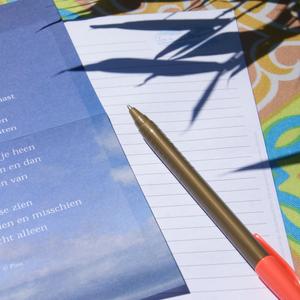 nast
en
ten
je heen
n en dan
en van
se zien
en en misschien
cht alleen